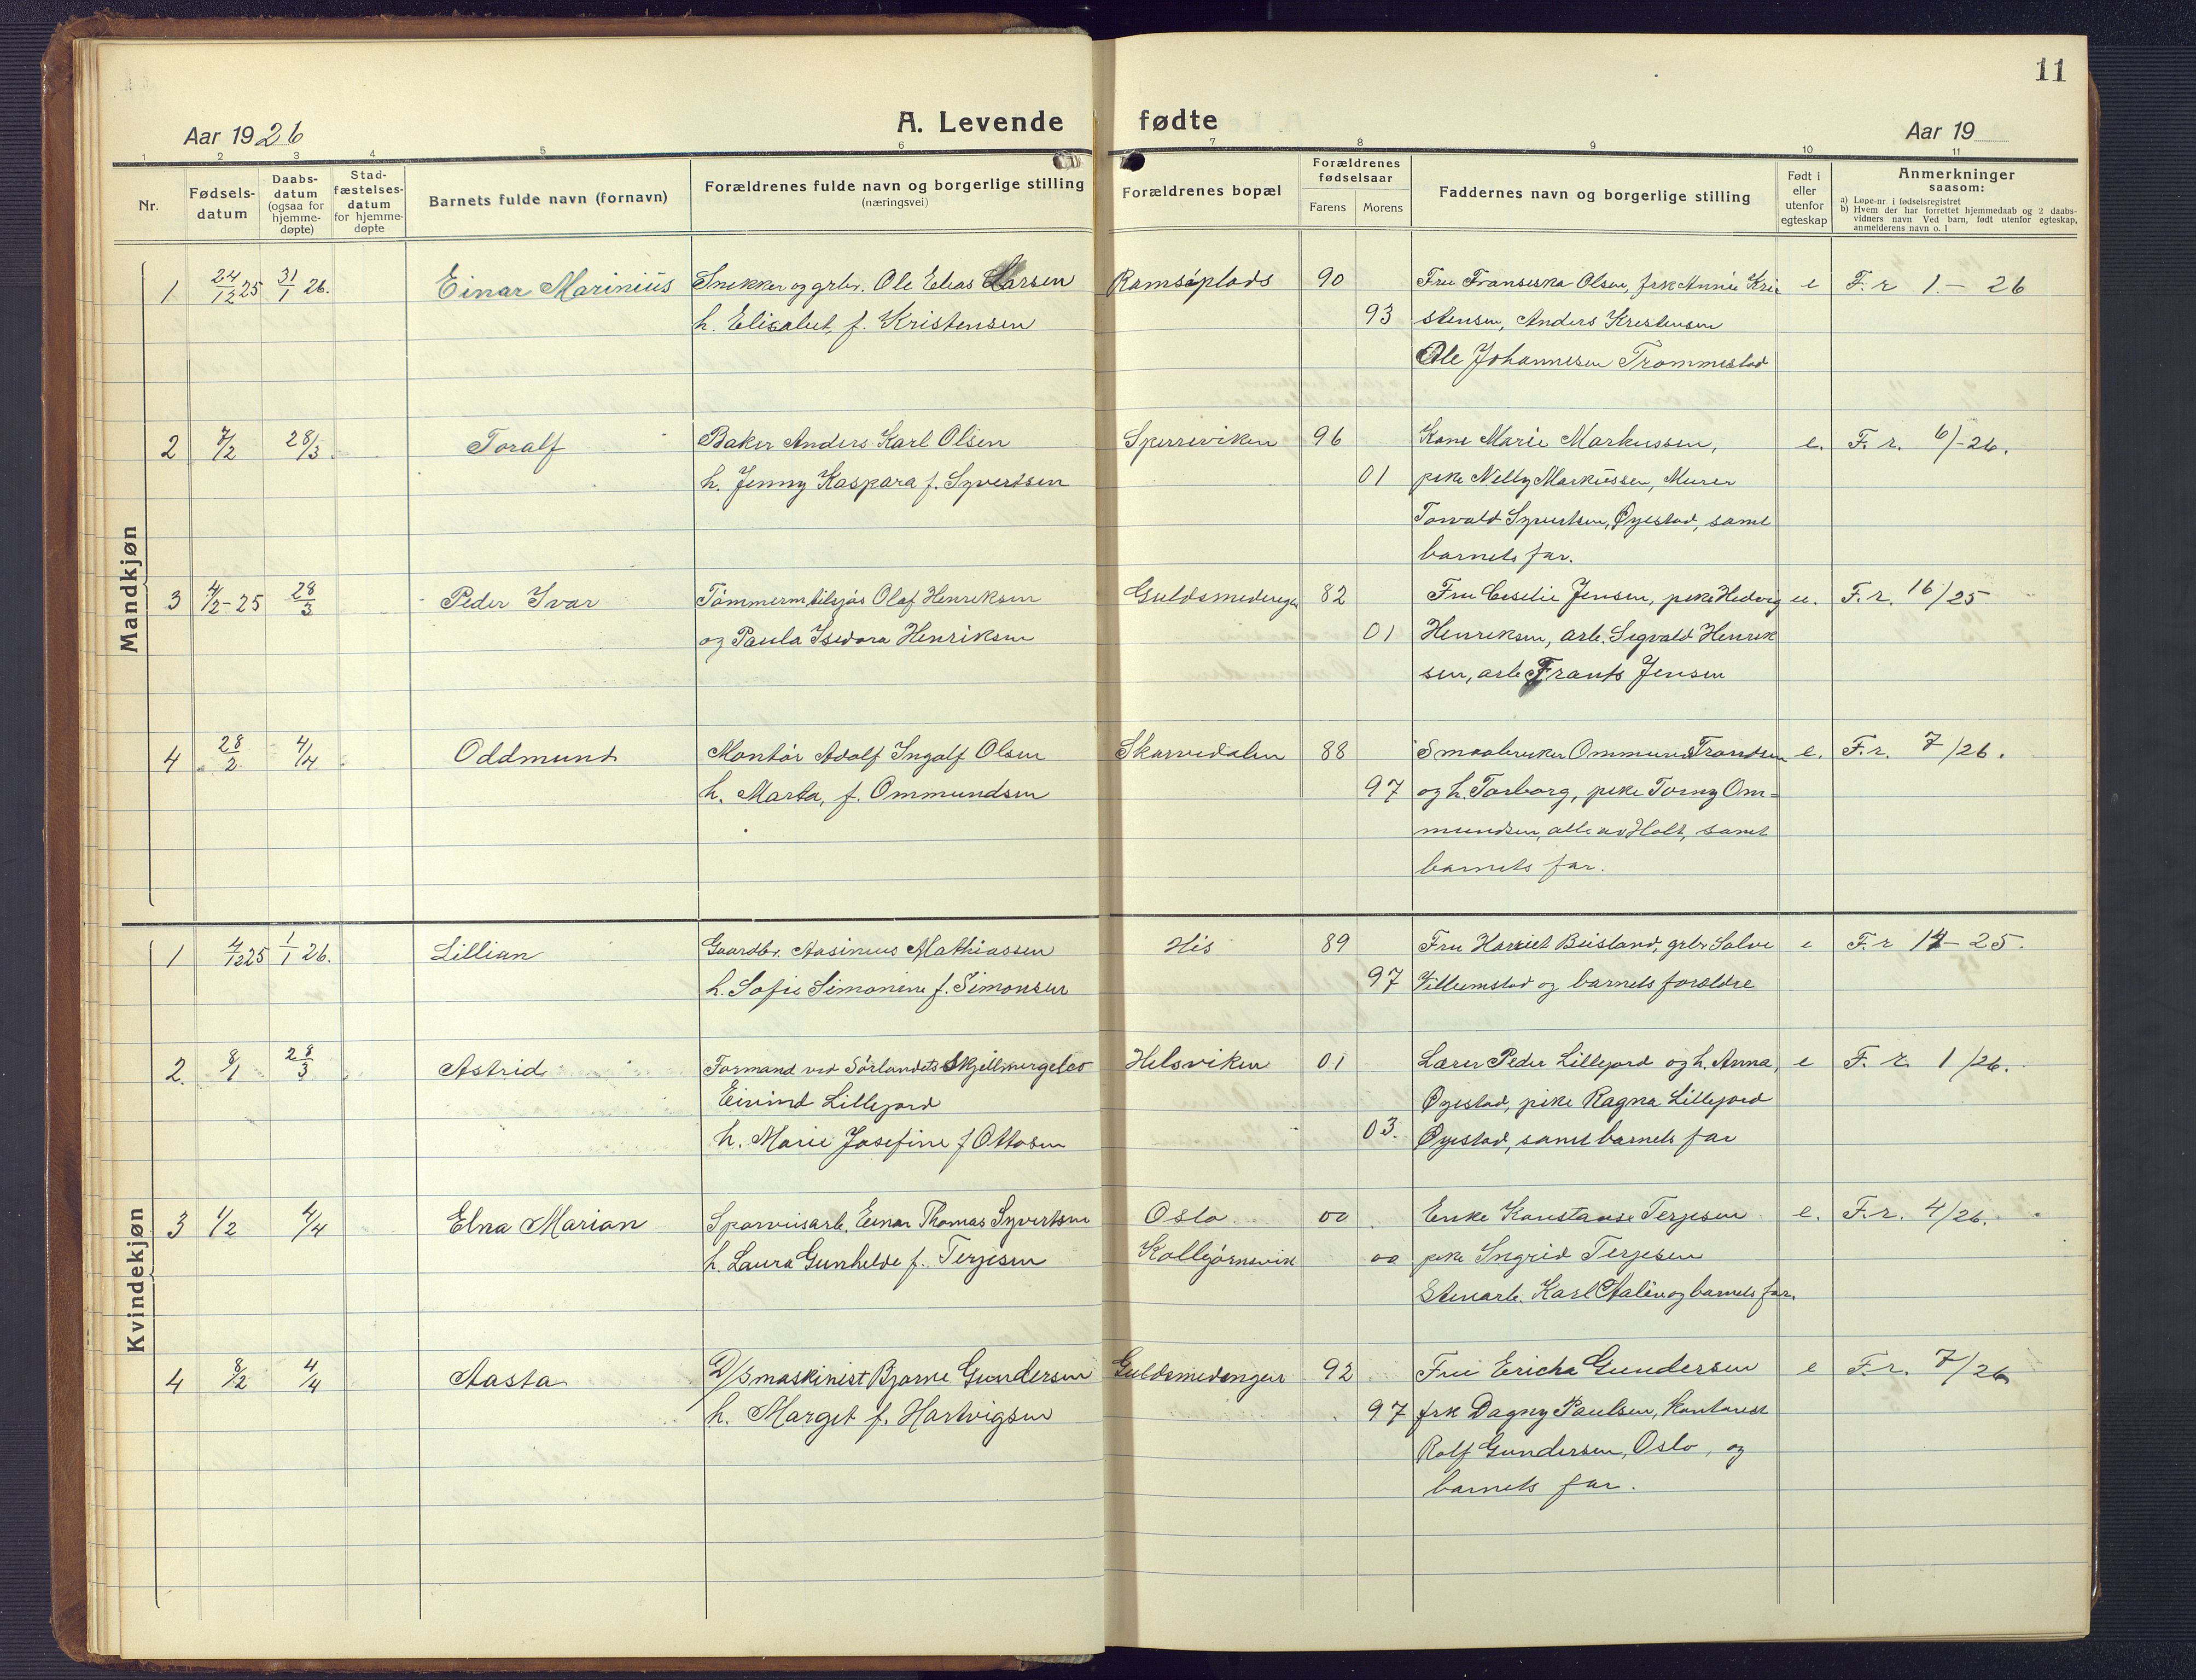 11
Aar 1926
A. Levende fødte
Aar 19
1 2 3 4 5 6 7 8 9 10 11
Nr.
Fødsels-
datum
Daabs-
datum
(ogsaa for
hjemme-
døpte)
Stad-
fæstelses-
datum
for hjemme-
døpte
Barnets fulde navn (fornavn)
Forældrenes fulde navn og borgerlige stilling
(næringsvei)
Forældrenes bopæl
Forældrenes
fødselsaar
Farens Morens
Faddernes navn og borgerlige stilling
Født i
eller
utenfor
egteskap
Anmerkninger
saasom:
a) Løpe-nr. i fødselsregistret
b) Hvem der har forrettet hjemmedaab og 2 daabs-
vidners navn Ved barn, født utenfor egteskap,
anmelderens navn o. l
Mandkjøn
1 24/12 25 31/1 26. Einar Marinius Snekker og grbr. Ole Elias Larsen Ramsöplads 90 Fru Fransiska Olsen, frk Annie Kri e F. r 1. - 26
h. Elisabet f. Kristensen 93 stensen, Anders Kristensen
Ole Johannesen Trommestad
2 7/2 28/3 Toralf Baker Anders Karl Olsen Sperreviken 96 Kone Marie Markussen, e. F. r. 6/-26.
h. Jenny Kaspara f. Syvertsen 01 pike Nelly Markussen, Murer
Torvald Syvertsen, Øyestad, samt
barnets far.
3 4/2-25 28/3 Peder Ivar Tömmerm, tilsjös Olaf Henriksen 82 Fru Cesilie Jensen, pike Hedvig u. F. r. 16/25
og Paula Isidora Henriksen 01 Henriksen, arb. Sigvald Henrik
sen, arb Frants Jensen
4 28/2 4/4 Oddmund Montör Adolf Ingolf Olsen Skarvedalen 88 Smaabruker Ommund Trondsen e. F. r. 7/26.
h. Marta, f. Ommundsen 97 og h. Torborg, pike Torny Om-
mundsen, alle av Holt, samt
barnets far.
Kvindekjøn
1 4/12 25 1/1 26. Lillian Gaardbr. Aasinius Mathiassen His 89 Fru Harriet Beisland, grbr Salve e F. r 14-25.
h. Sofie Simonine f. Simonsen 97 Villumstad og barnets forældre
2. 8/1 28/3 Astrid Formand ved Sörlandets Helsviken 01 Lærer Peder Lillejord og h. Anna, e F. r. 1/26.
Eivind Lillejord Øyestad, pike Ragna Lillejord
h. Marie Josefine f Ottosen 03. Øyestad, samt barnets far
3 1/2 4/4 Elna Marian Sporveisarb. Einar Thomas Syvertsen Oslo 00 Enke Konstanse Terjesen e. F. r. 4/26.
h. Laura Gunhilde f. Terjesen Kolbjörnsvik 00 pike Ingrid Terjesen
Stenarb. Karl og barnets far.
4 8/2 4/4 Aasta D/S maskinist Bjarne Gundersen Guldsmedengen 92 Fru Ericka Gundersen e F. r. 7/26
h. Marget f. Hartvigsen 97 frk Dagny Paulsen, Kontorist
Rolf Gundersen, Oslo, og
barnets far.